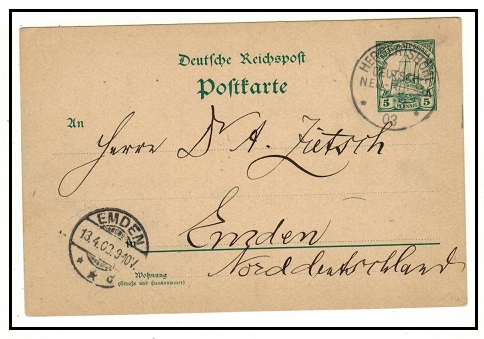 Deutsche Reichspost
Postkarte
5 PFENNIG 5
HERBERTSHÖHE
DEUTSCH
NEU-
03
An
Herrn Dr A. Zietsch
Emden
Norddeutschland
EMDEN
13.4.03.9-10V.
* * d
Wohnung
(Straße und Hausnummer)